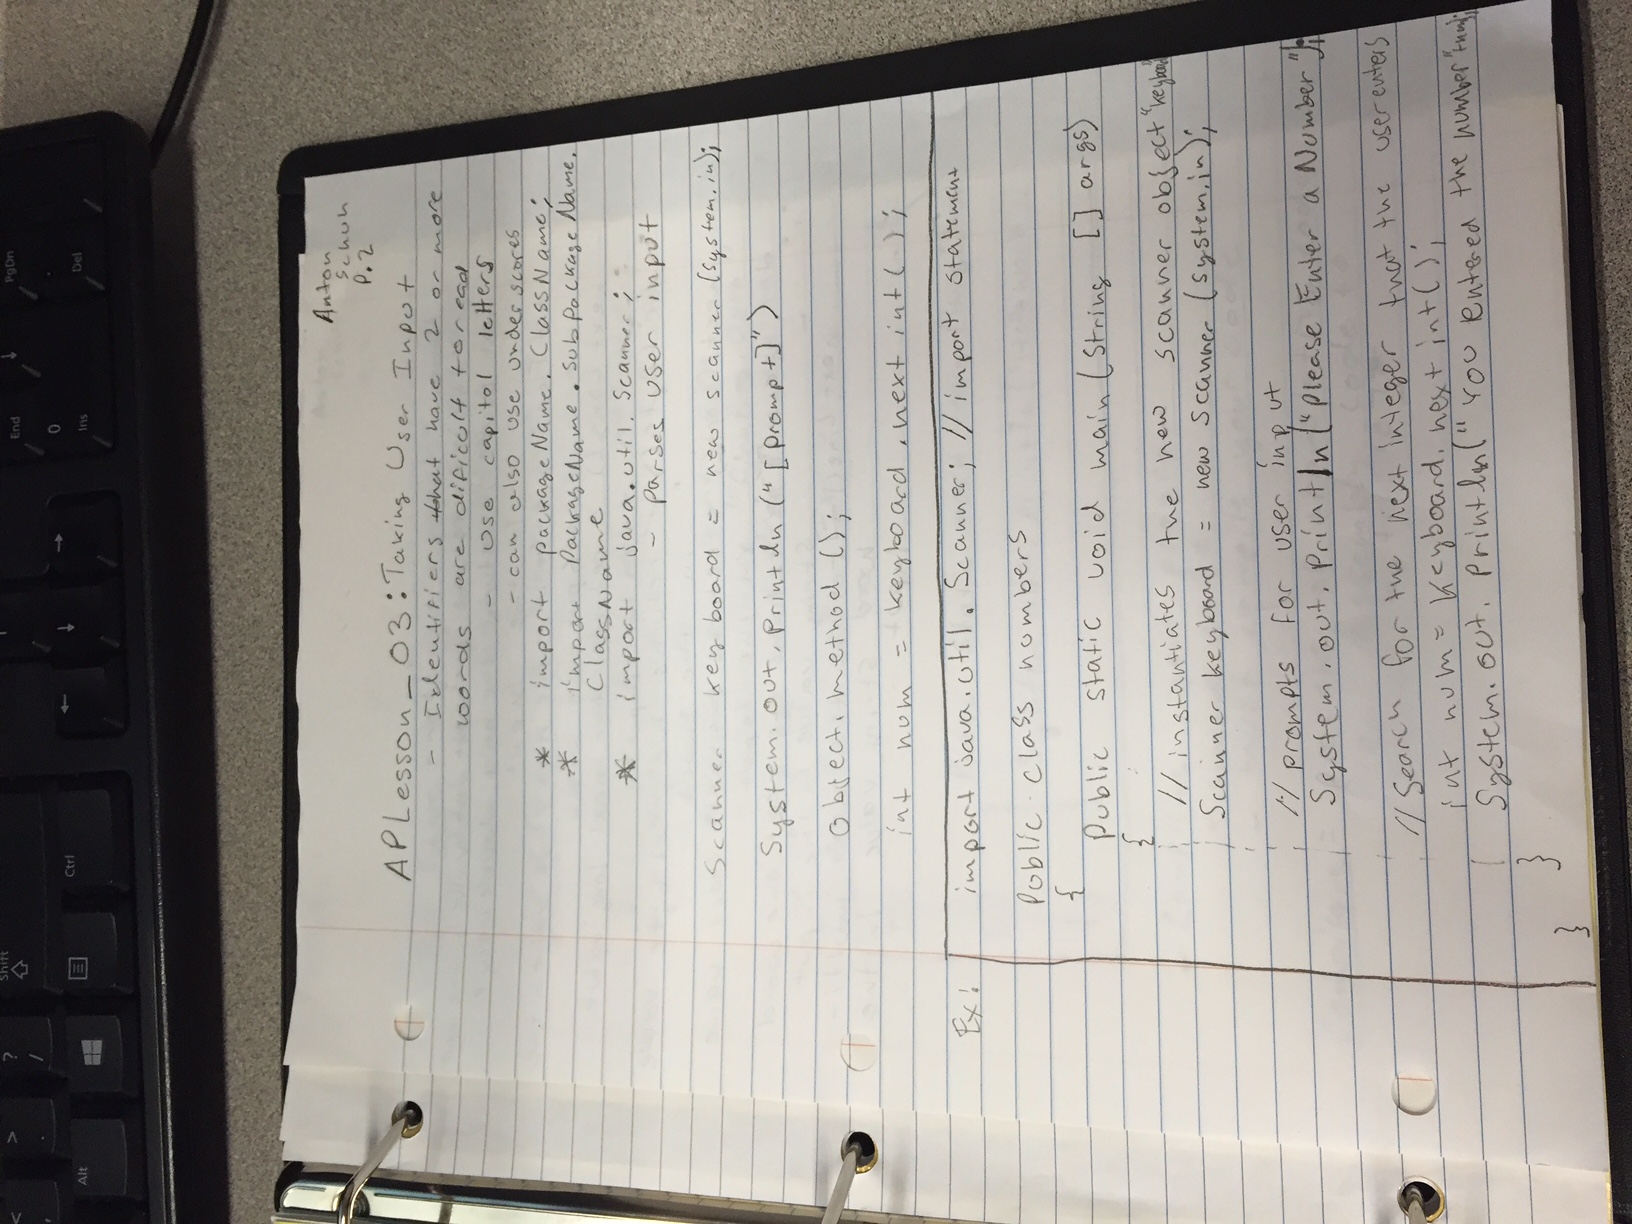 Shift
< > ? /
Alt Ctrl
← ↓ →
End ↓ PgDn
0
Ins Del
Anton
Schuh
P.2
APLesson_03: Taking User Input
- Identifiers that have 2 or more
words are dificult to read
- Use capitol letters
- can also use underscores
* import packageName.ClassName;
* import PackageName.SubPackageName.
ClassName
* import java.util.Scanner;
- Parses user input
Scanner keyboard = new scanner (System.in);
System.out.println ("[Prompt]")
Object.method ();
int num = keyboard.next int ();
Ex: import java.util.Scanner; // import statement
Public class numbers
{
Public static void main (String [] args)
{
// instantiates the new scanner object "keyboard"
Scanner keyboard = new scanner (system.in);
// prompts for user input
System.out.println ("Please Enter a Number");
// Search for the next integer that the user enters
int num = keyboard.next int();
System.out.println(" You entered the number"+num);
}
}